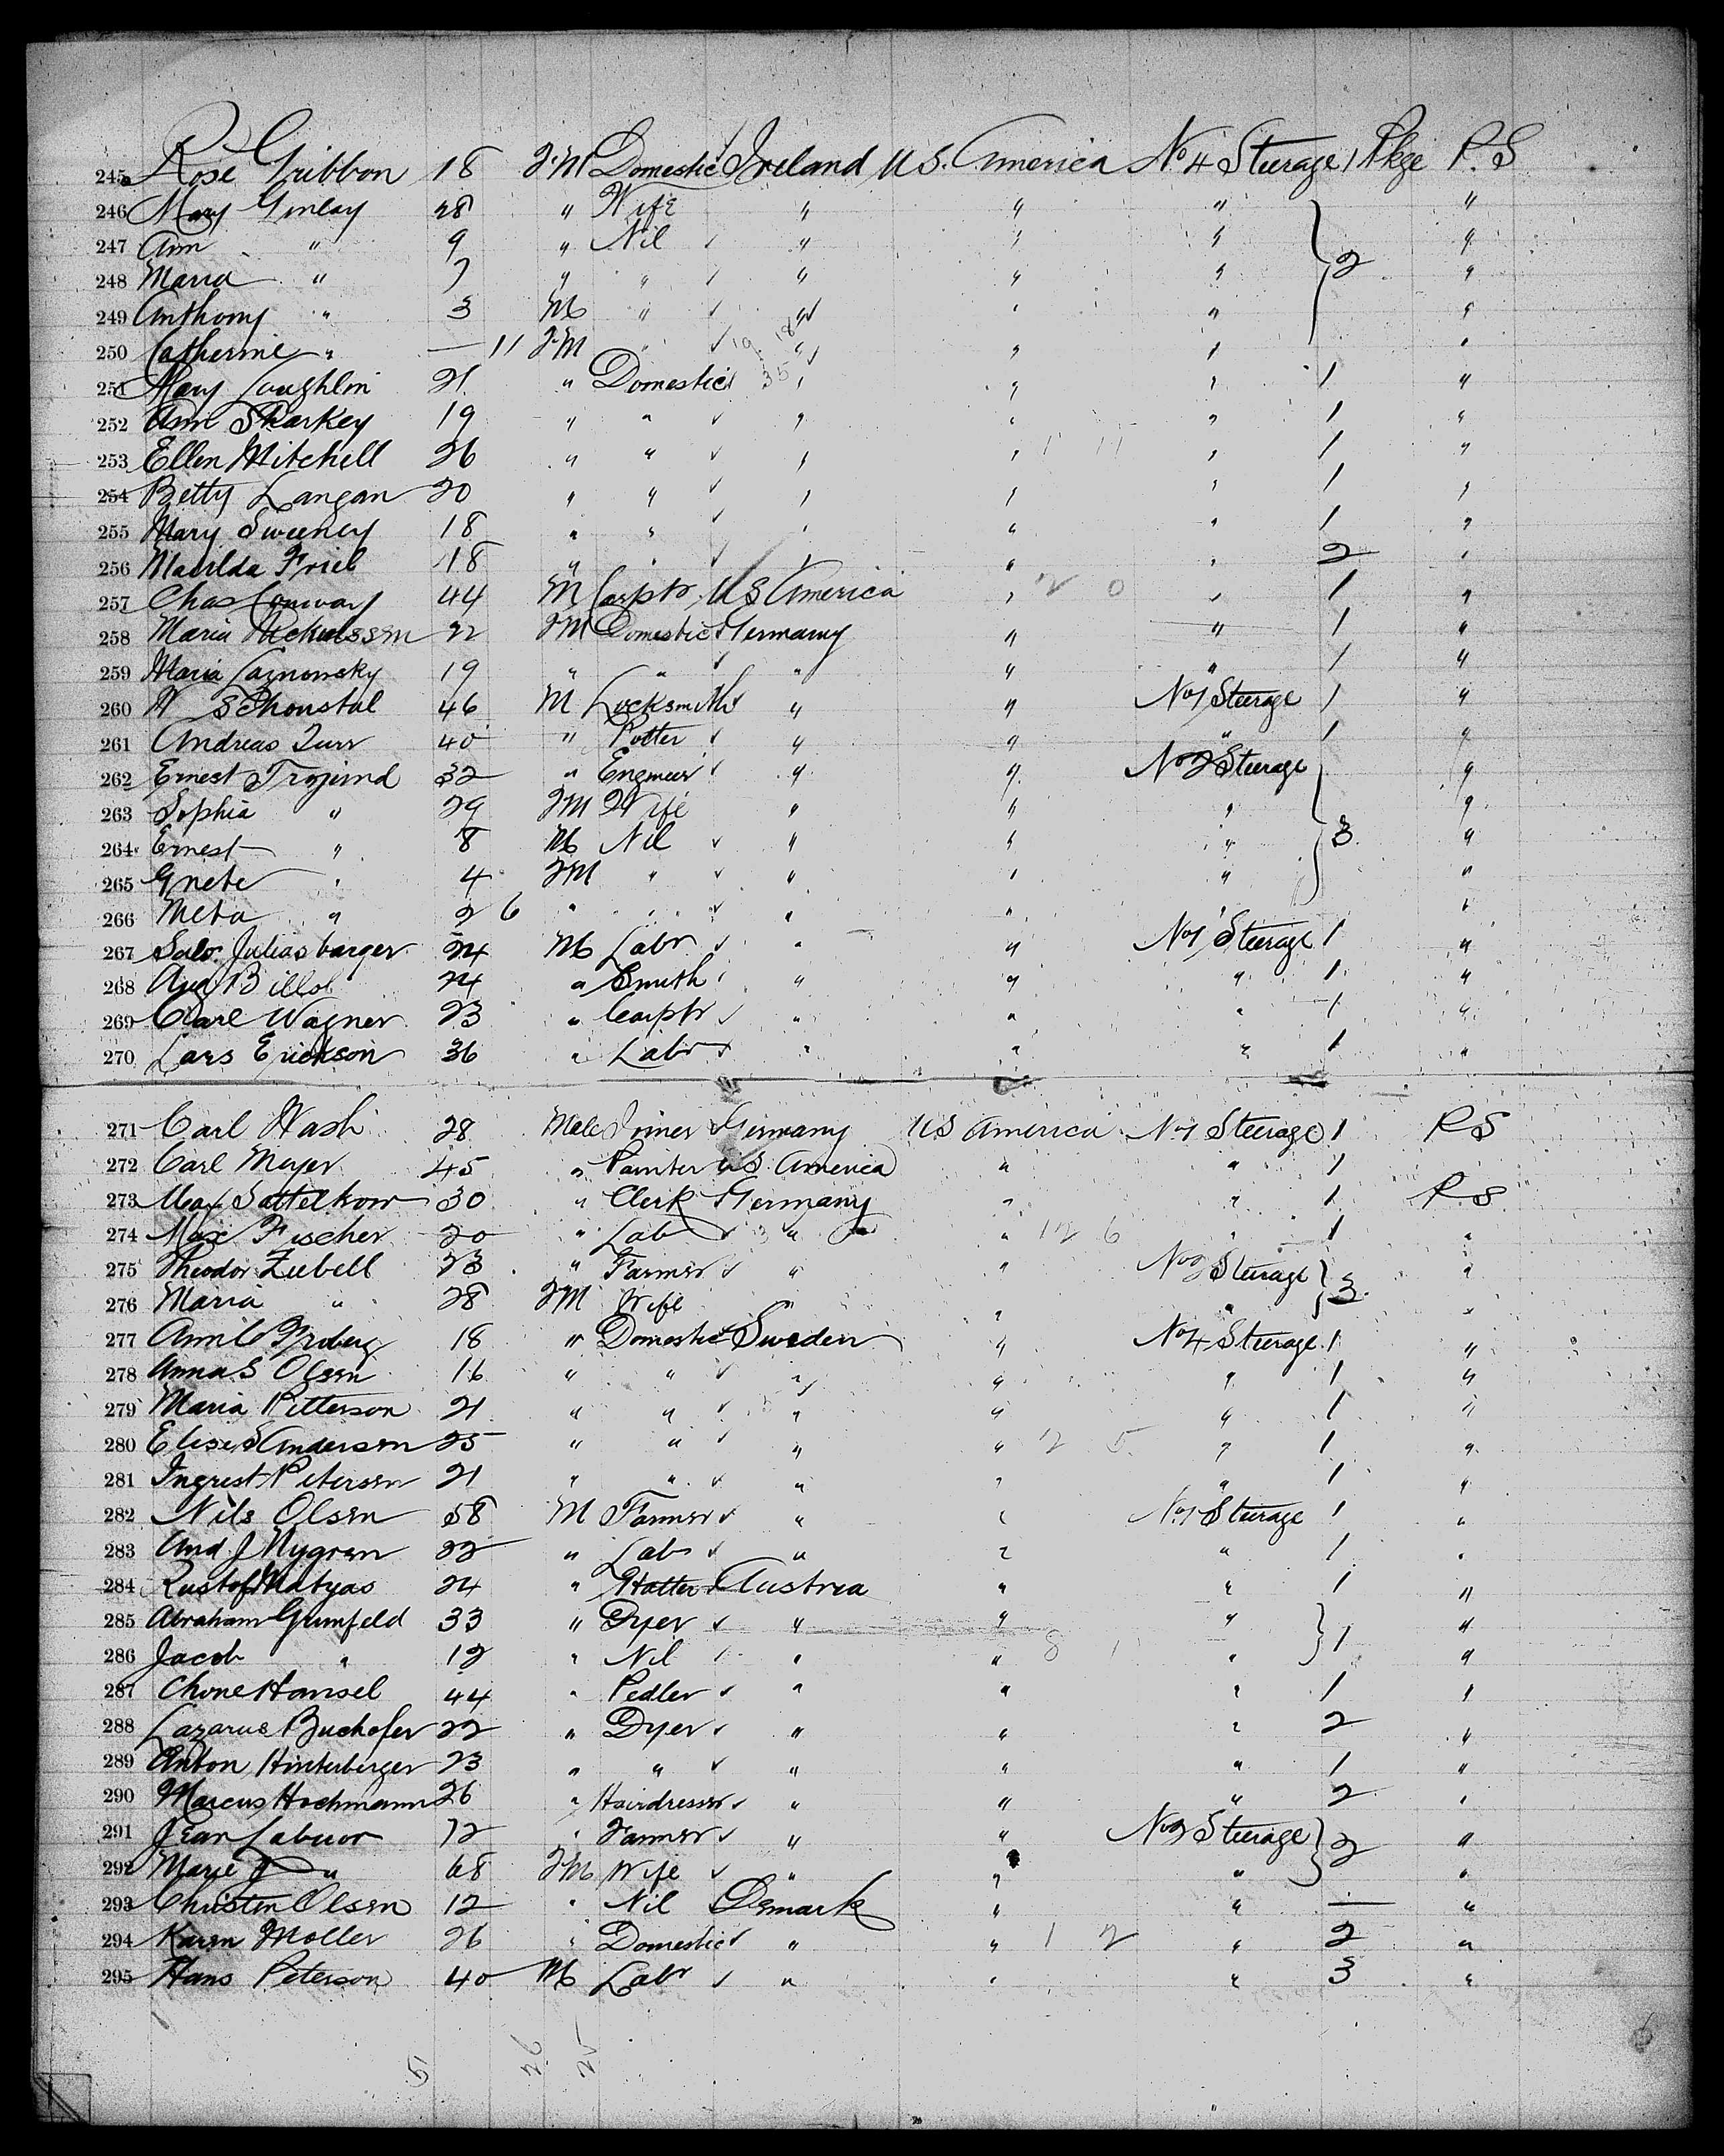 245 Rose Gribbon 18 FM Domestic Ireland U S. America No 4 Steerage 1 Pkge P. S
246 Mary Ginlay 28 " Wife " " " "
247 Ann " 9 " Nil " " " "
248 Maria " 7 " " " " " 2 "
249 Anthony " 3 M " " " " "
250 Catherine " — 11 FM " " " " "
251 Mary Loughlin 21 " Domestic " " " 1 "
252 Ann Sharkey 19 " " " " " 1 "
253 Ellen Mitchell 26 " " " " " 1 "
254 Betty Langan 20 " " " " " 1 "
255 Mary Sweeney 18 " " " " " 1 "
256 Matilda Friel 18 " " " " " 2 "
257 Chas Conway 44 M Carptr U S America " " 1 "
258 Maria 22 FM Domestic Germany " " 1 "
259 Maria 19 " " " " " 1 "
260 W Schonstal 46 M Locksmith " " No 1 Steerage 1 "
261 Andreas 40 " Potter " " " 1 "
262 Ernest 32 " Engineer " " No 2 Steerage "
263 Sophia " 29 FM Wife " " " "
264 Ernest " 8 M Nil " " " 3 "
265 Grete " 4 FM " " " " "
266 Meta " 2 6 " " " " " "
267 Salo Juliasbarger 24 M Labr " " No 1 Steerage 1 "
268 24 " Smith " " " 1 "
269 Carl Wagner 23 " Carptr " " " 1 "
270 Lars Erickson 36 " Labr " " " 1 "
271 Carl Wash 28 Male Joiner Germany U S America No 1 Steerage 1 P S
272 Carl Meyer 45 " Painter U S. America " " 1
273 Max Sattelkow 30 " Clerk Germany " " 1 P S
274 Max Fischer 20 " Lab " " " 1 "
275 Theodor Zubell 23 " Farmer " " No 2 Steerage "
276 Maria " 28 FM Wife " " " 3 "
277 18 " Domestic Sweden " No 4 Steerage 1 "
278 Anna S Olsen 16 " " " " " 1 "
279 Maria Pitterson 21 " " " " " 1 "
280 Elise S Anderson 25 " " " " " 1 "
281 Ingrest Petersen 21 " " " " " 1 "
282 Nils Olsen 58 M Farmer " " No 1 Steerage 1 "
283 And J Nygren 22 " Lab " " " 1 "
284 Matyas 24 " Hatter Austria " " 1 "
285 Abraham Grunfeld 33 " Dyer " " " "
286 Jacob " 12 " Nil " " " 1 "
287 Chone Hansel 44 " Pedler " " " 1 "
288 Lazarus Buchofer 22 " Dyer " " " 2 "
289 Anton Hinterberger 23 " " " " " 1 "
290 Marcus Hochmann 26 " Hairdresser " " " 2 "
291 Jean 72 " Farmer " " No 2 Steerage "
292 Marie " 68 FM Wife " " " 2 "
293 Christen Olsen 12 " Nil Denmark " " — "
294 Karen Moller 26 " Domestic " " " 2 "
295 Hans Peterson 40 M Labr " " " 3 "